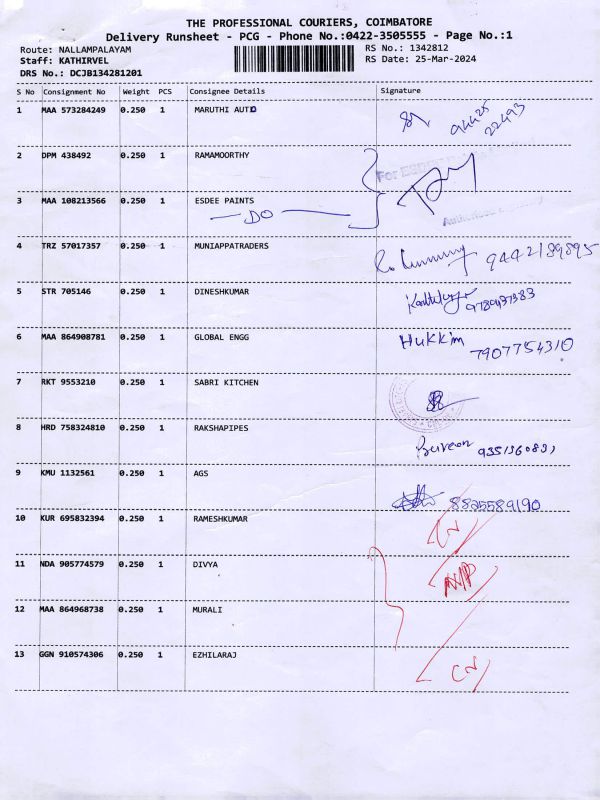 THE PROFESSIONAL COURIERS, COIMBATORE
Delivery Runsheet - PCG - Phone No.:0422-3505555 - Page No.:1
Route: NALLAMPALAYAM RS No.: 1342812
Staff: KATHIRVEL RS Date: 25-Mar-2024
DRS No.: DCJB134281201
S No Consignment No Weight PCS Consignee Details Signature
1 MAA 573284249 0.250 1 MARUTHI AUTO
94425
22493
2 DPM 438492 0.250 1 RAMAMOORTHY
For
3 MAA 108213566 0.250 1 ESDEE PAINTS
DO
4 TRZ 57017357 0.250 1 MUNIAPPATRADERS
9442189895
5 STR 705146 0.250 1 DINESHKUMAR
6 MAA 864908781 0.250 1 GLOBAL ENGG
Hukkim
7907754310
7 RKT 9553210 0.250 1 SABRI KITCHEN
8 HRD 758324810 0.250 1 RAKSHAPIPES
9 KMU 1132561 0.250 1 AGS
8825589190
10 KUR 695832394 0.250 1 RAMESHKUMAR
11 NDA 905774579 0.250 1 DIVYA
12 MAA 864968738 0.250 1 MURALI
13 GGN 910574306 0.250 1 EZHILARAJ